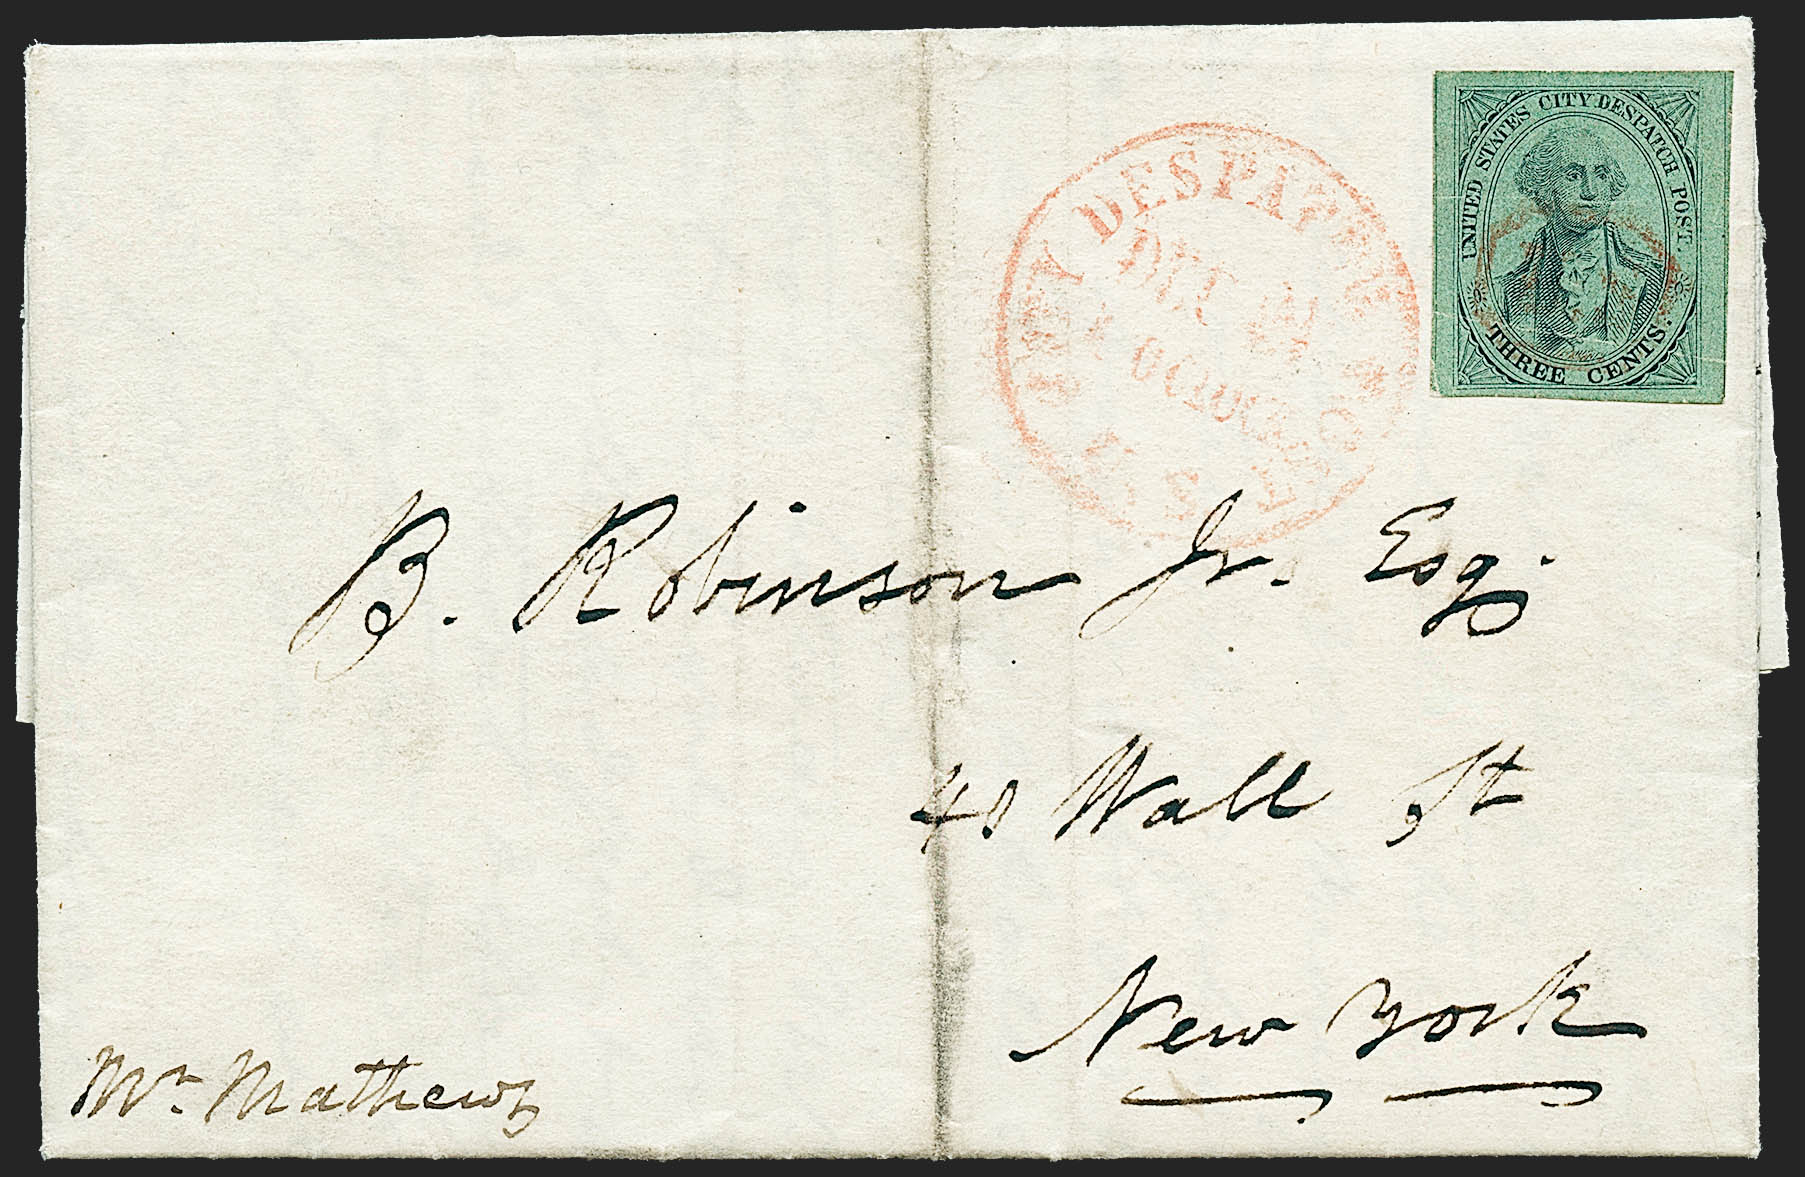 UNITED STATES CITY DESPATCH POST.
THREE CENTS.
CITY DESPATCH
O'CLOCK
B. Robinson Jr. Esq.
Wall St
New York
Mr. Mathews